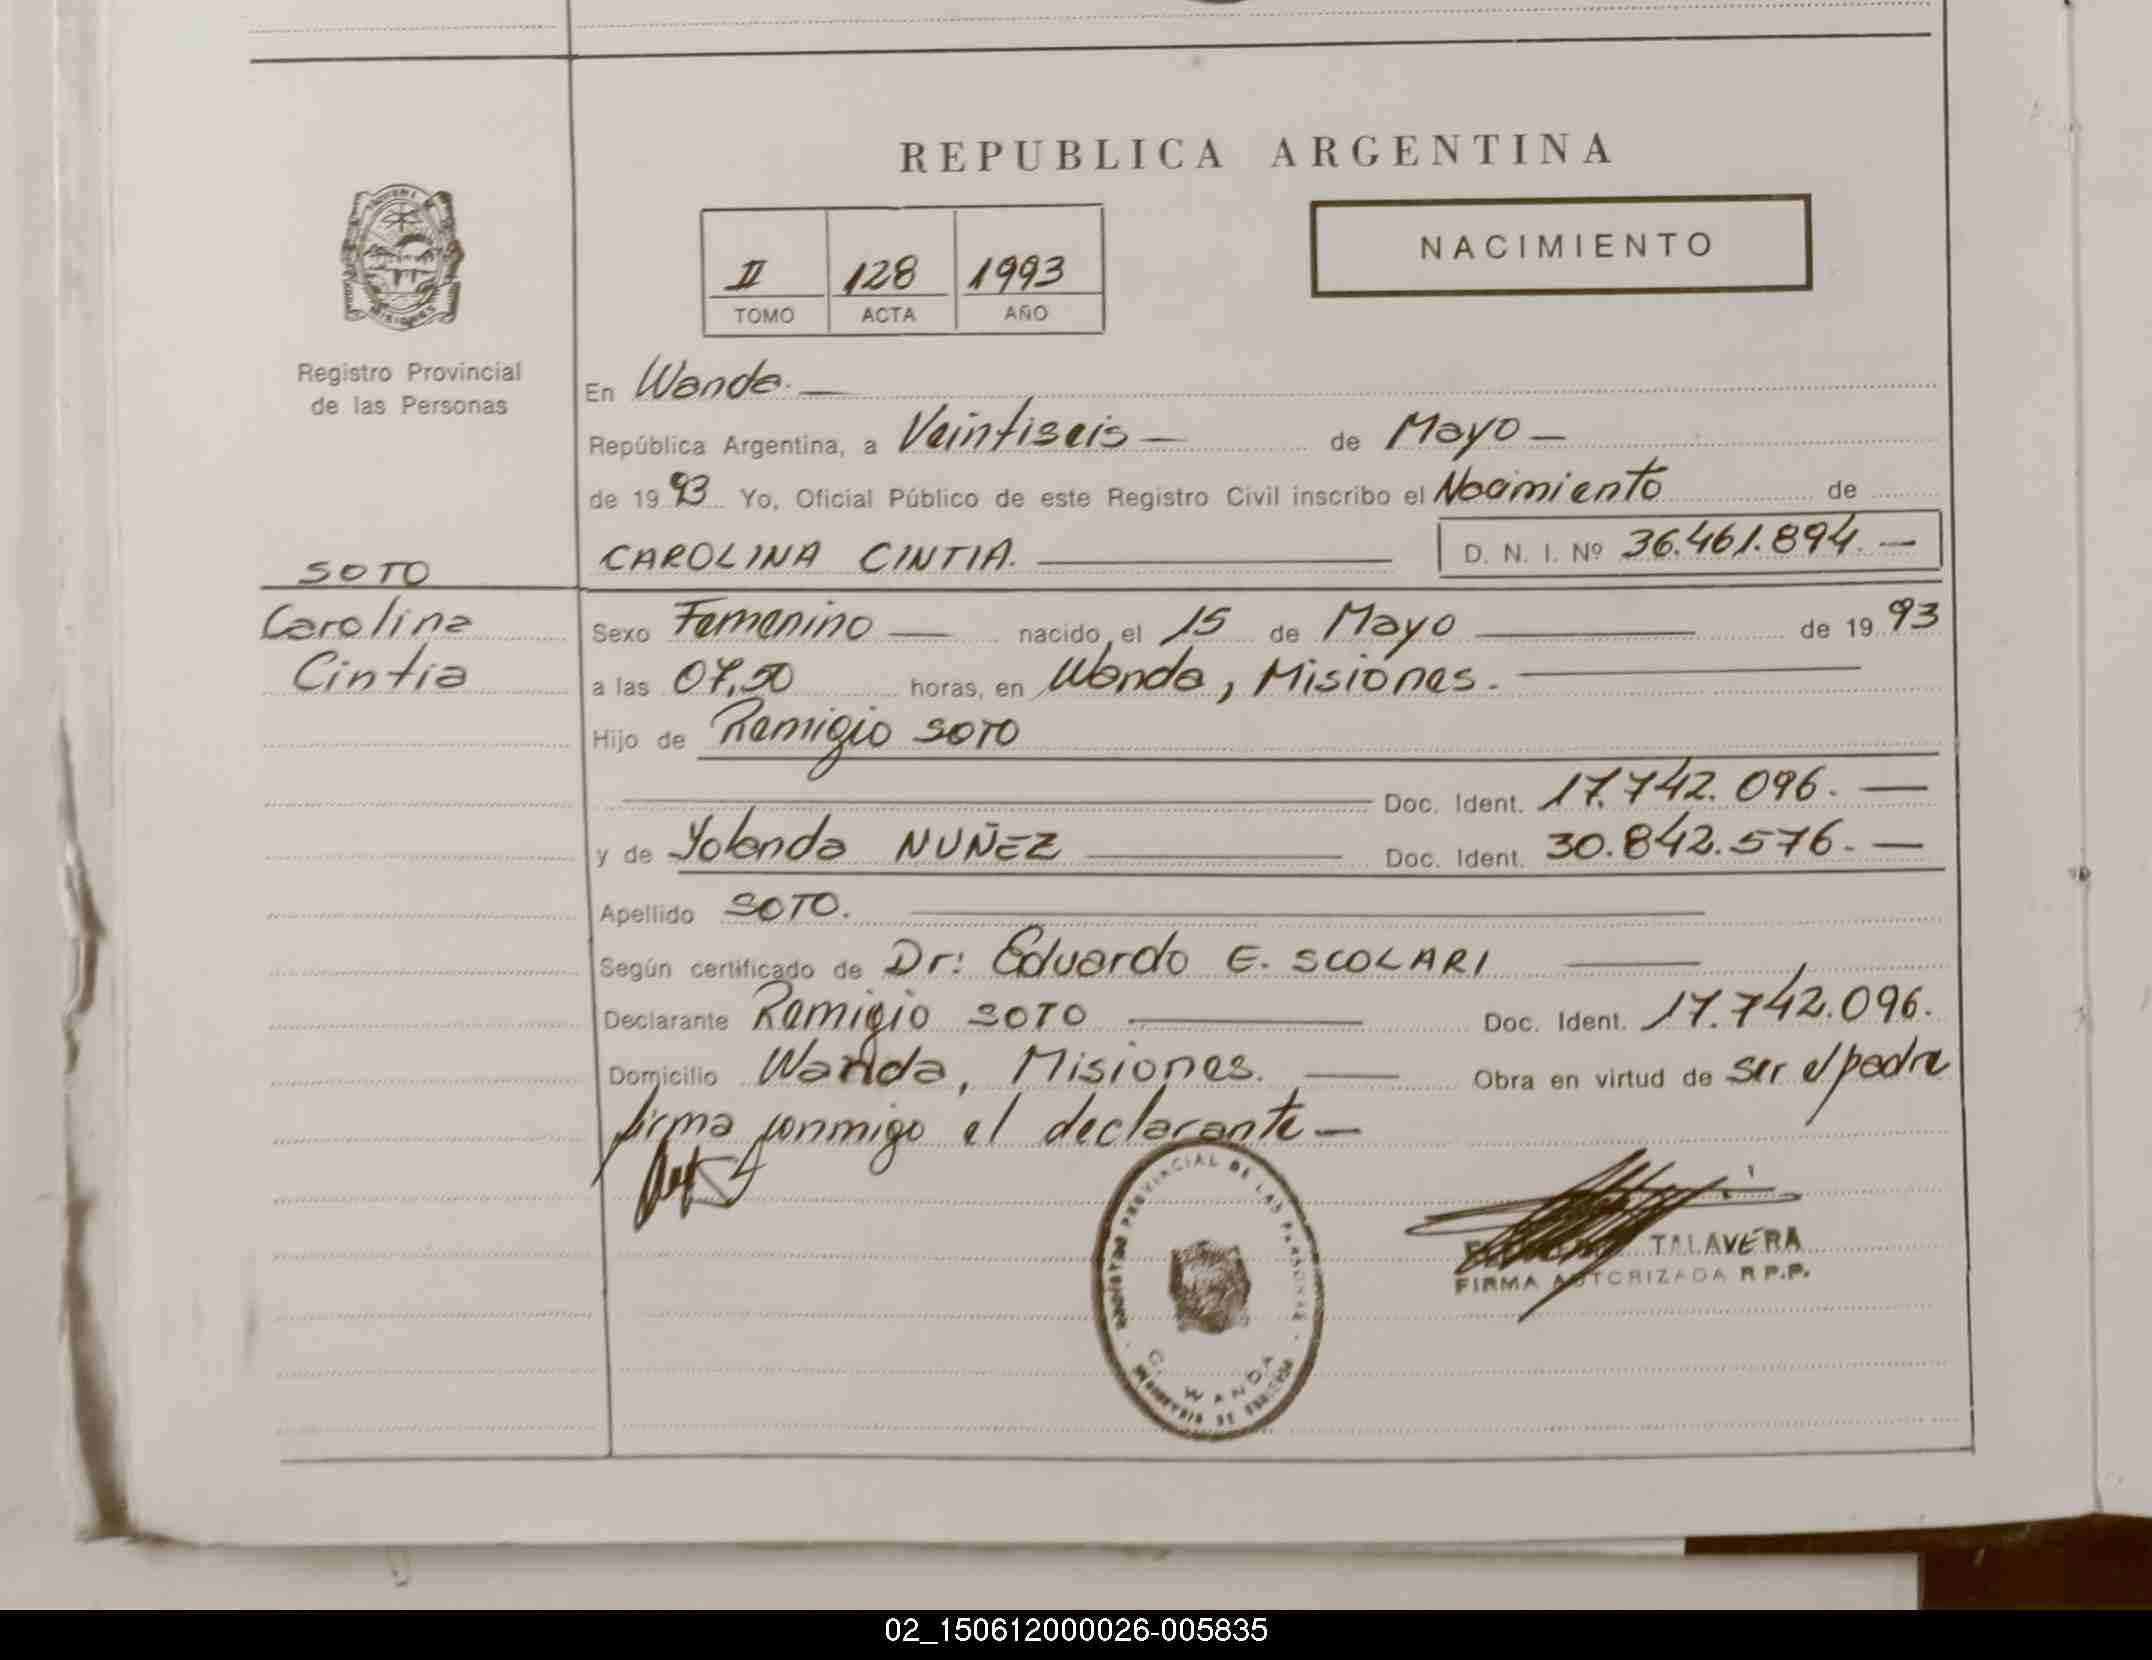 REPUBLICA ARGENTINA
NACIMIENTO
II 128 1993
TOMO ACTA AÑO
MISIONES
Registro Provincial
de las Personas
En Wanda.—
República Argentina, a Veintiseis — de Mayo —
de 1993 Yo, Oficial Público de este Registro Civil inscribo el Nacimiento de
CAROLINA CINTIA. D. N. I. Nº 36.461.894.—
SOTO
Carolina
Cintia
Sexo Femenino — nacido, el 15 de Mayo — de 1993
a las 07,50 horas, en Wanda, Misiones. —
Hijo de Remigio SOTO
Doc. Ident. 17.742.096. —
y de Yolanda NUÑEZ — Doc. Ident. 30.842.576. —
Apellido SOTO. —
Según certificado de Dr: Eduardo E. SCOLARI —
Declarante Remigio SOTO — Doc. Ident. 17.742.096.
Domicilio Wanda, Misiones. — Obra en virtud de ser el padre
firma conmigo el declarante —
REGISTRO PROVINCIAL DE LAS PERSONAS
WANDA
MINISTERIO DE GOBIERNO
TALAVERA
FIRMA AUTORIZADA R.P.P.
02_150612000026-005835